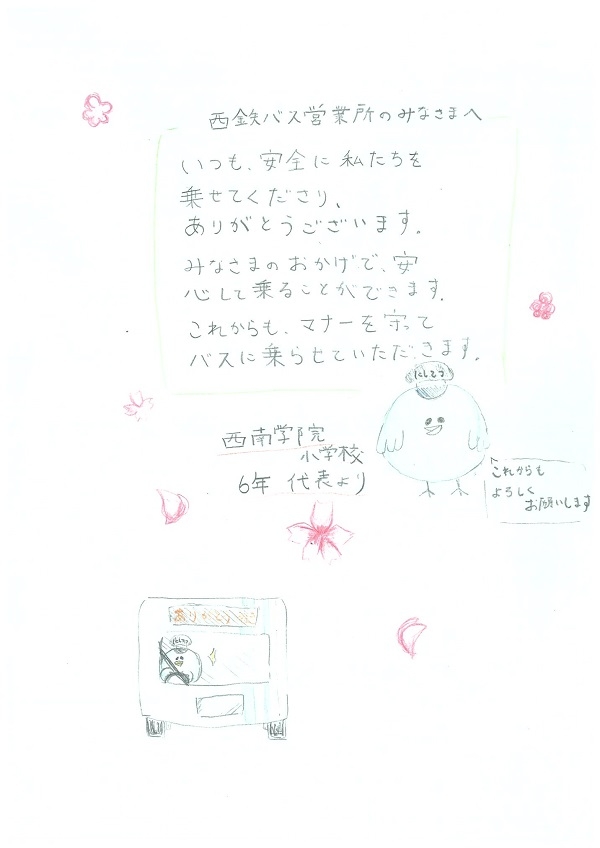 西鉄バス営業所のみなさまへ
いつも、安全に私たちを
乗せてくださり、
ありがとうございます。
みなさまのおかげで、安
心して乗ることができます。
これからも、マナーを守って
バスに乗らせていただきます。
にしてつ
西南学院
小学校
6年 代表より
これからも
よろしく
お願いします
にしてつ